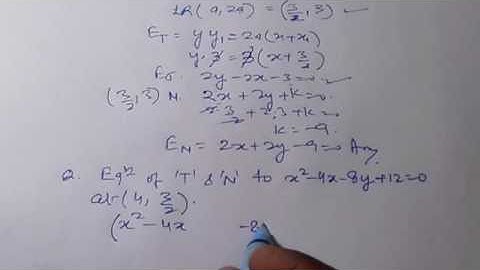 LR(a, 2a) = (3/2, 3)
E_T = y y₁ = 2a(x+x₁)
y·3 = 3(x + 3/2)
2y-2x-3=0
(3/2, 3) N. 2x+2y+k=0
2·3/2 + 2·3 + k=0
k = -9.
E_N = 2x+2y-9=0 Any
Q. Eqⁿ of 'T' & 'N' to x²-4x-8y+12=0
at (4, 3/2).
(x²-4x -8